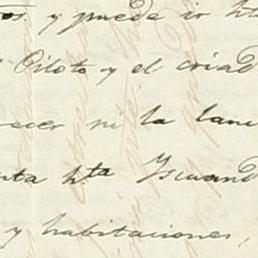 y puede ir h
Piloto y el criad
ni la lan
ta hta Iscuand
y habitaciones,